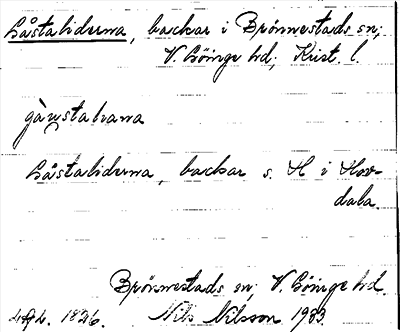 Gåstaliderna, backar i Brönnestads sn;
V. Göinge hd; Krist. l.
Gåstaliderna, backar s. H i Hov-
dala.
Brönnestads sn; V. Göinge hd.
1826. Nils Nilsson 1933.